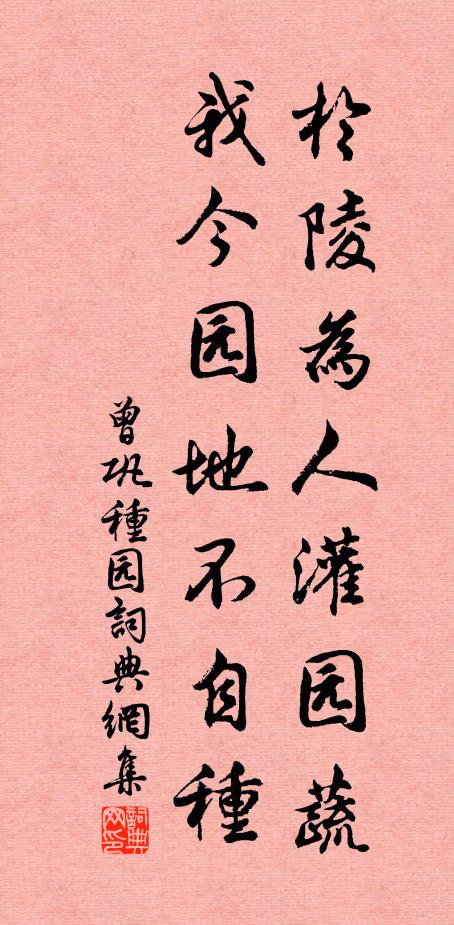 於陵為人灌园蔬
我今园地不自種
曾巩種园詞典網集
詞典网印